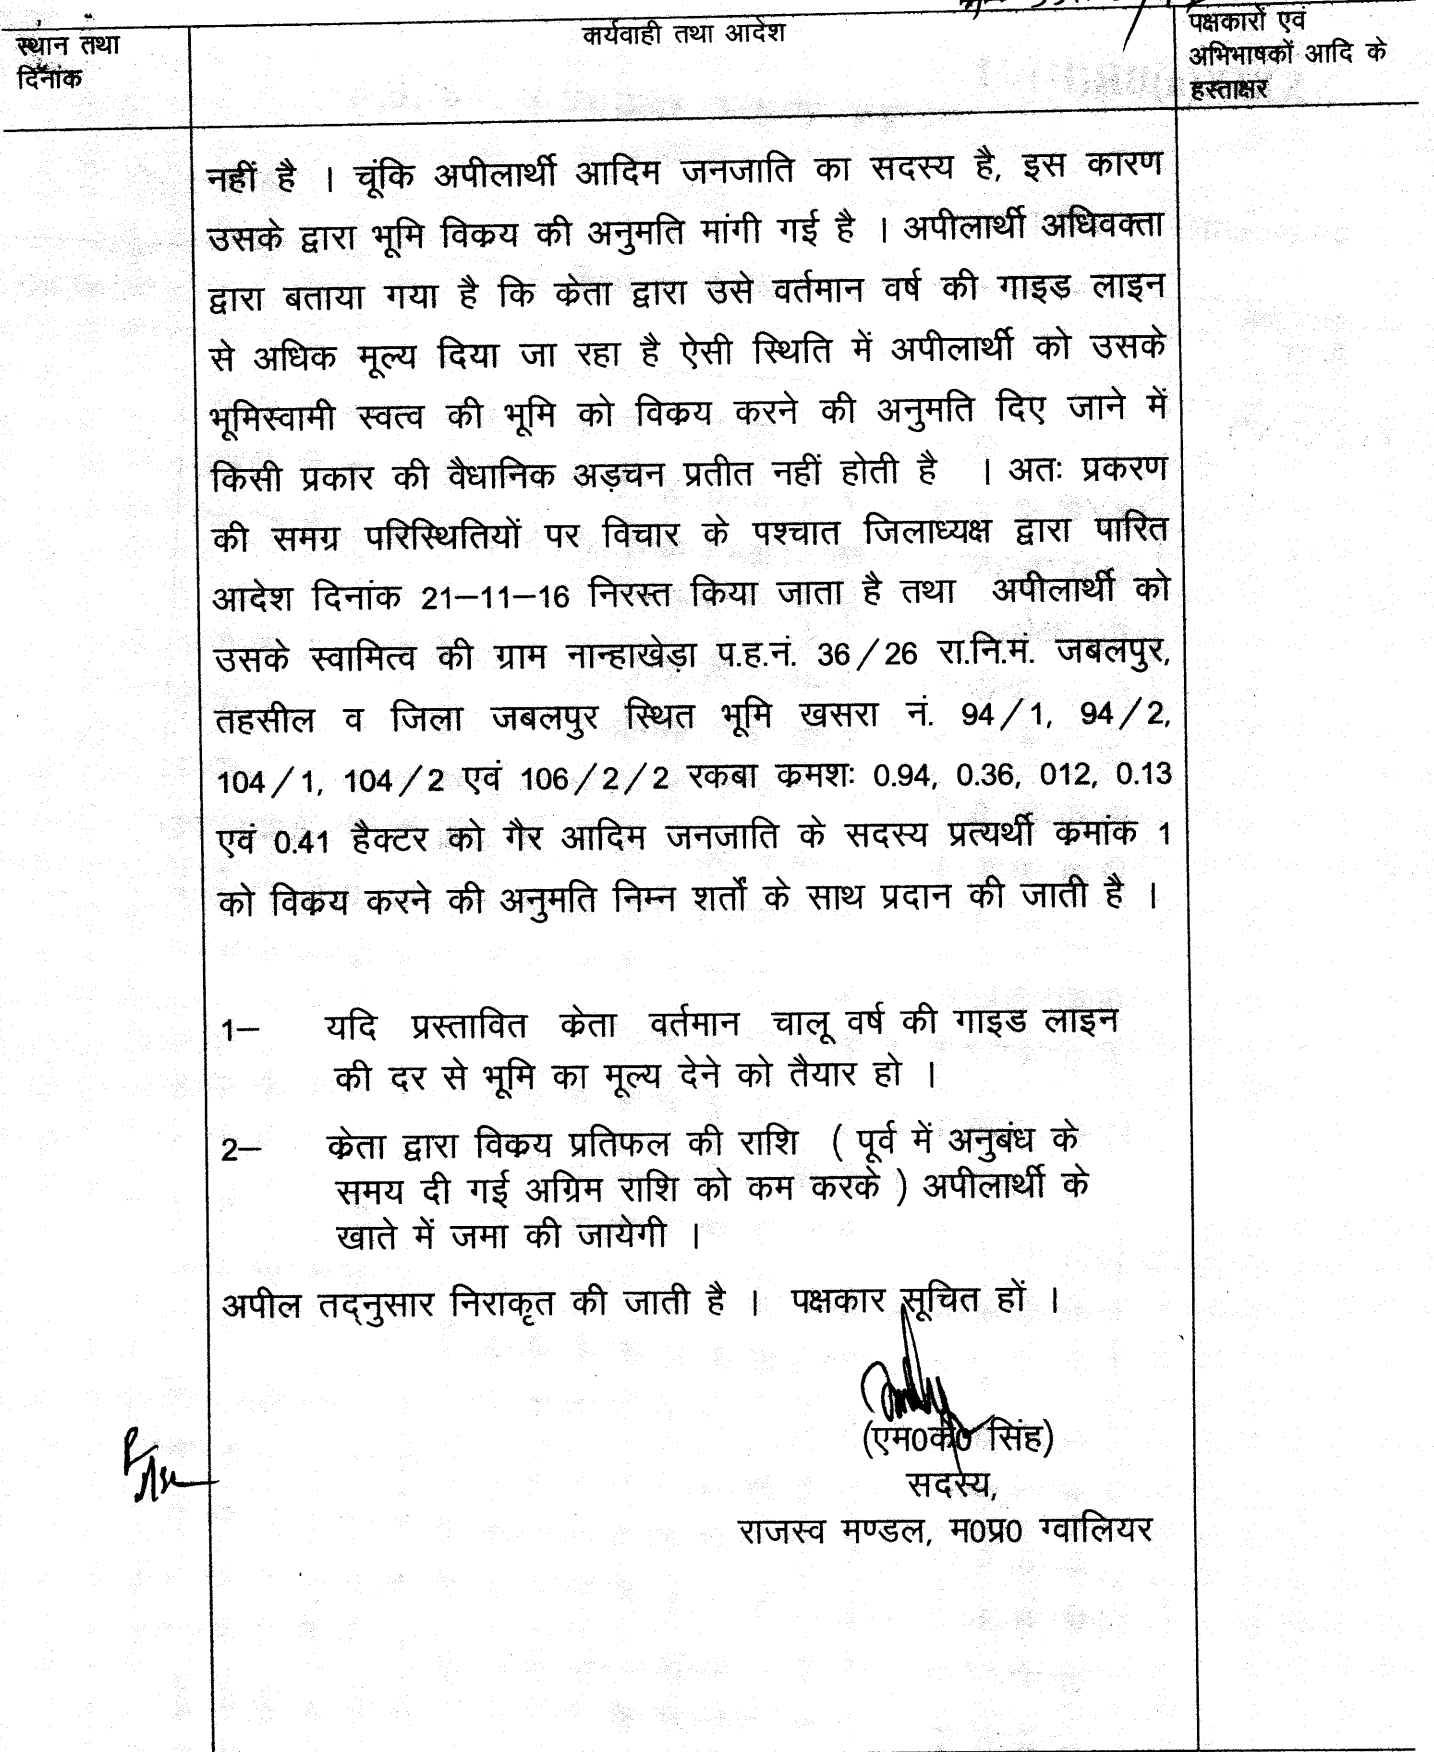 स्थान तथा
दिनांक
कार्यवाही तथा आदेश
पक्षकारों एवं
अभिभाषकों आदि के
हस्ताक्षर
नहीं है । चूंकि अपीलार्थी आदिम जनजाति का सदस्य है, इस कारण
उसके द्वारा भूमि विक्रय की अनुमति मांगी गई है । अपीलार्थी अधिवक्ता
द्वारा बताया गया है कि क्रेता द्वारा उसे वर्तमान वर्ष की गाइड लाइन
से अधिक मूल्य दिया जा रहा है ऐसी स्थिति में अपीलार्थी को उसके
भूमिस्वामी स्वत्व की भूमि को विक्रय करने की अनुमति दिए जाने में
किसी प्रकार की वैधानिक अड़चन प्रतीत नहीं होती है । अतः प्रकरण
की समग्र परिस्थितियों पर विचार के पश्चात जिलाध्यक्ष द्वारा पारित
आदेश दिनांक 21–11–16 निरस्त किया जाता है तथा अपीलार्थी को
उसके स्वामित्व की ग्राम नान्हाखेड़ा प.ह.नं. 36/26 रा.नि.मं. जबलपुर,
तहसील व जिला जबलपुर स्थित भूमि खसरा नं. 94/1, 94/2,
104/1, 104/2 एवं 106/2/2 रकबा क्रमशः 0.94, 0.36, 012, 0.13
एवं 0.41 हैक्टर को गैर आदिम जनजाति के सदस्य प्रत्यर्थी क्रमांक 1
को विक्रय करने की अनुमति निम्न शर्तों के साथ प्रदान की जाती है ।
1– यदि प्रस्तावित क्रेता वर्तमान चालू वर्ष की गाइड लाइन
की दर से भूमि का मूल्य देने को तैयार हो ।
2– क्रेता द्वारा विक्रय प्रतिफल की राशि ( पूर्व में अनुबंध के
समय दी गई अग्रिम राशि को कम करके ) अपीलार्थी के
खाते में जमा की जायेगी ।
अपील तद्नुसार निराकृत की जाती है । पक्षकार सूचित हों ।
(एम0के0 सिंह)
सदस्य,
राजस्व मण्डल, म0प्र0 ग्वालियर